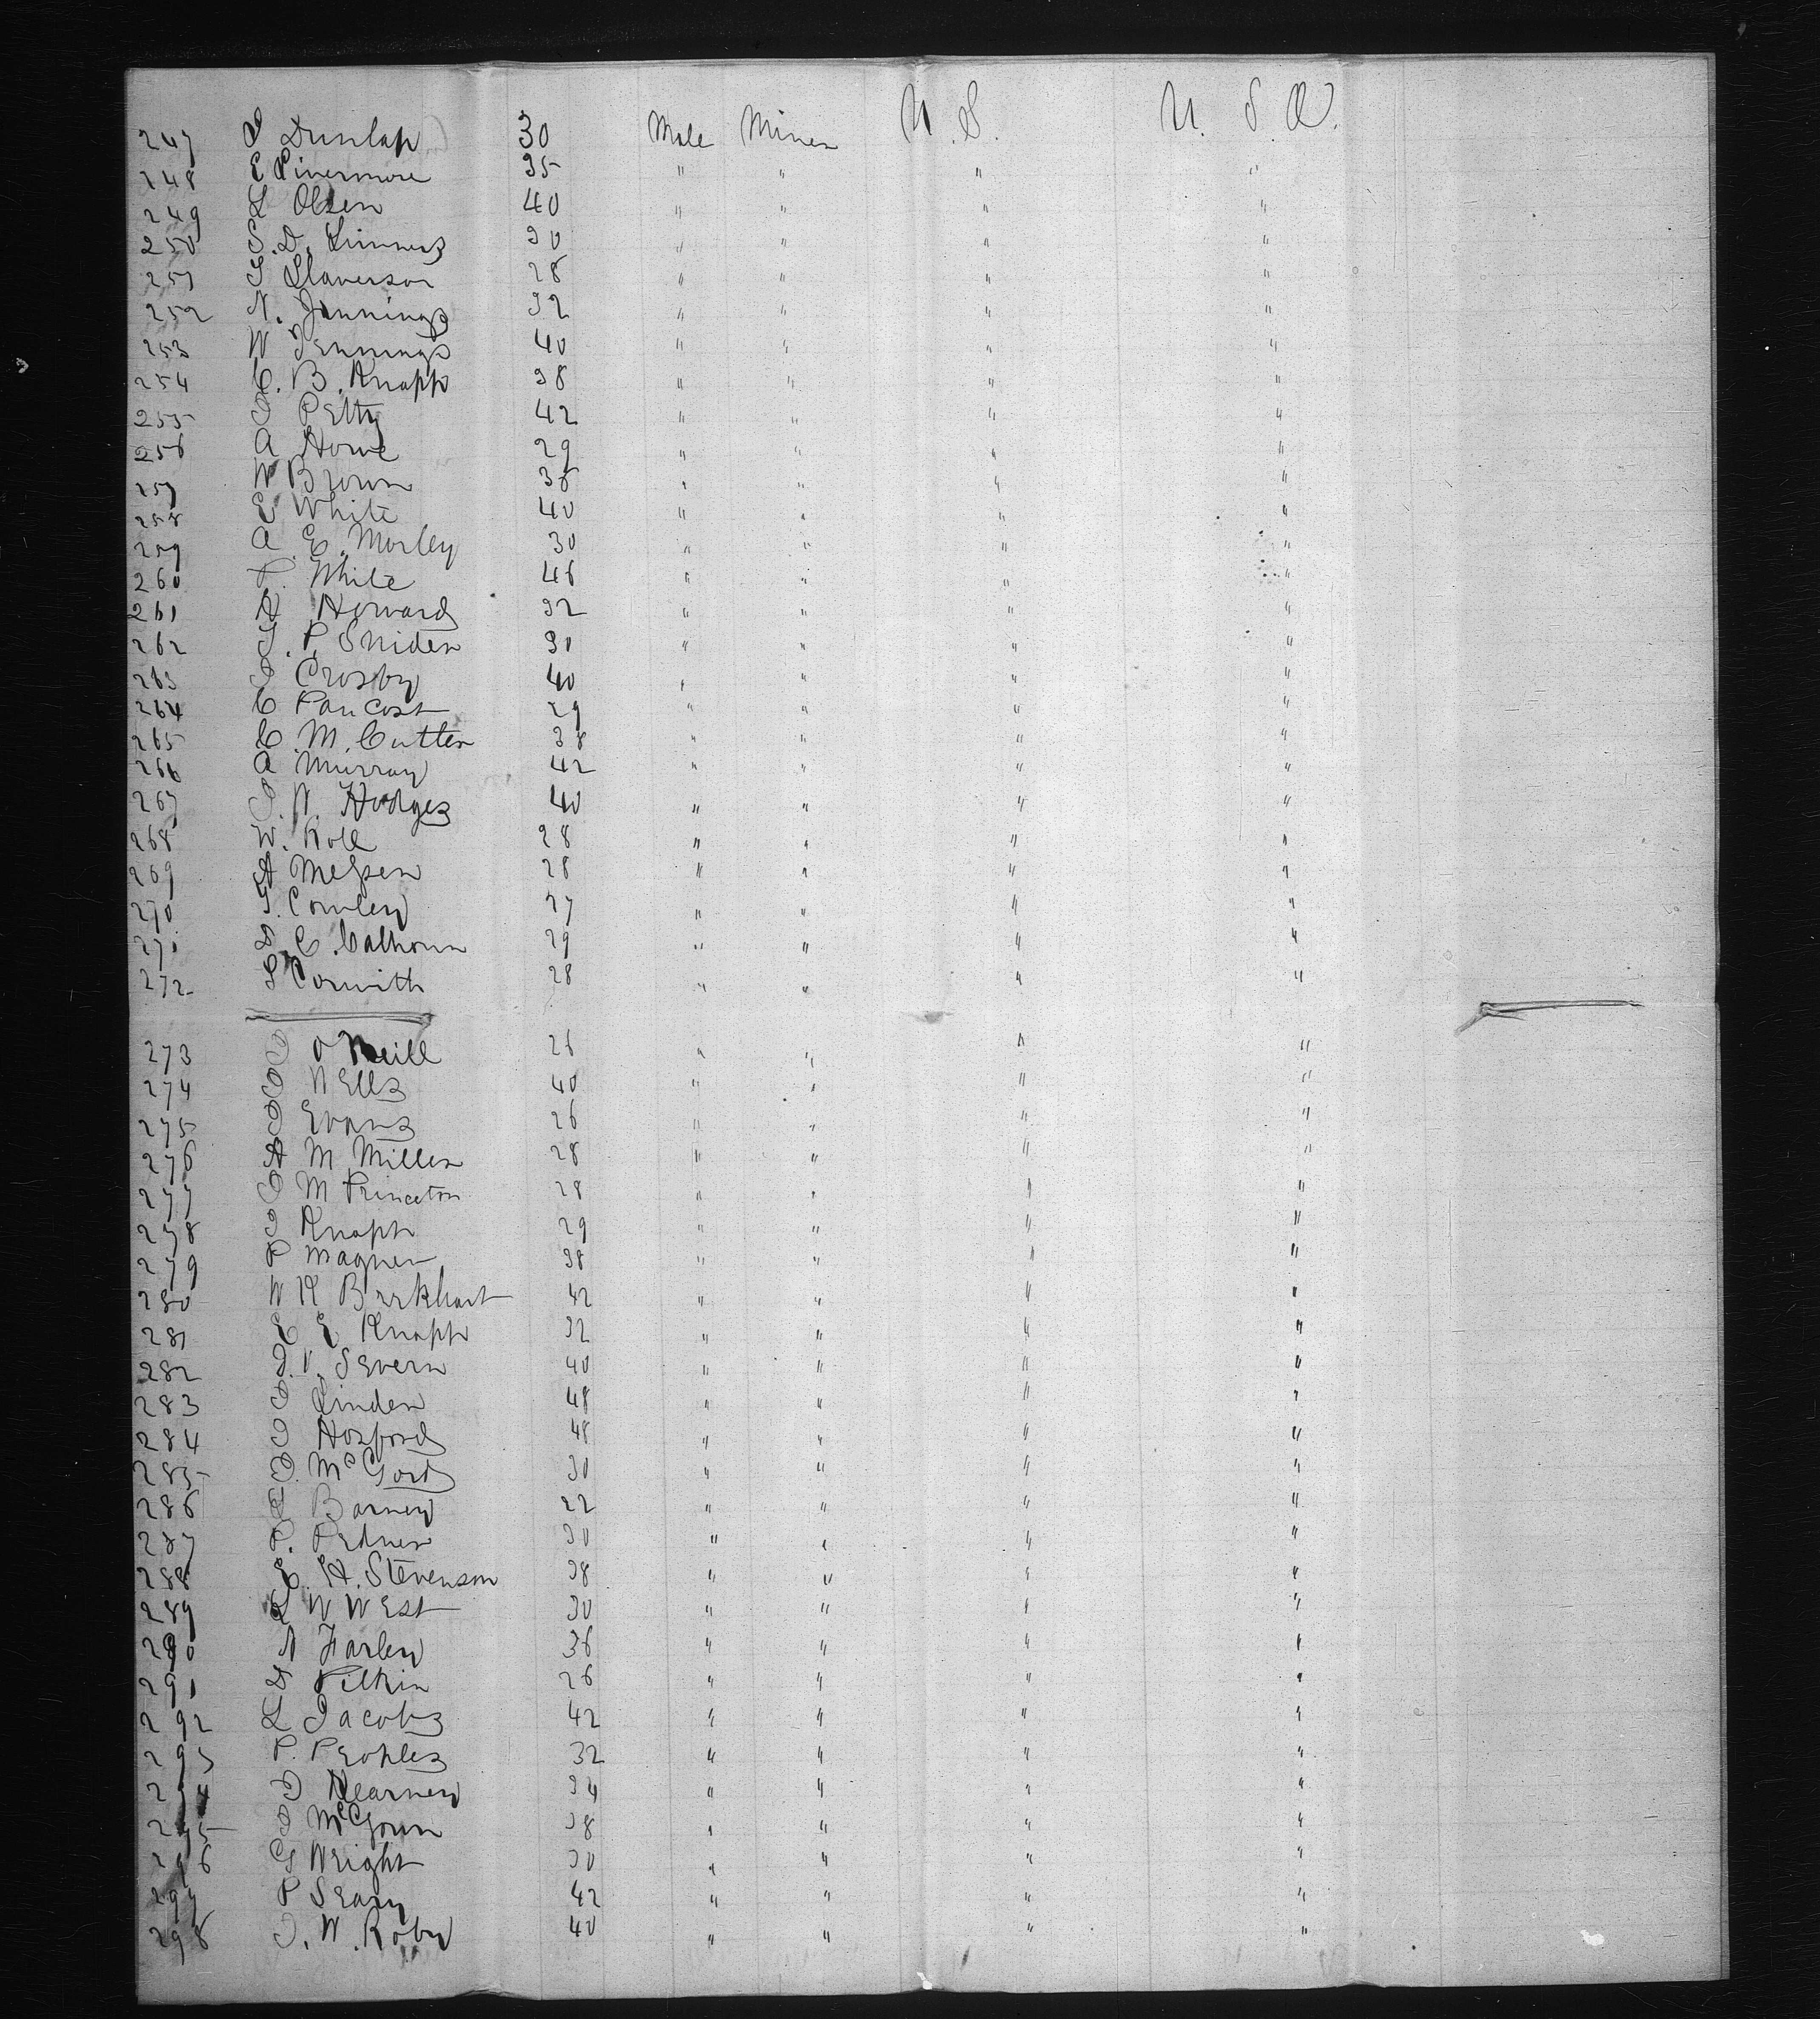 247 J Dunlap 30 Male Miner U.S. U.S.A.
248 E Livermore 35 " " " "
249 L Olsen 40 " " " "
250 S. D. Simmers 30 " " " "
251 T Slaverson 28 " " " "
252 N. Jennings 32 " " " "
253 W Jennings 40 " " " "
254 C. B. Knapp 38 " " " "
255 J Petty 42 " " " "
256 A Howe 29 " " " "
257 W Brown 38 " " " "
258 E White 40 " " " "
259 A. E. Morley 30 " " " "
260 T. White 46 " " " "
261 H Howard 32 " " " "
262 T. P. Snider 30 " " " "
263 J Crosby 40 " " " "
264 C Pancost 29 " " " "
265 C. M. Cutter 38 " " " "
266 A Murray 42 " " " "
267 J. N. Hodges 40 " " " "
268 W. Roll 28 " " " "
269 A Melsen 28 " " " "
270 T. Conley 27 " " " "
271 D C. Calhoun 29 " " " "
272 S Corwith 28 " " " "
273 O Neill 26 " " " "
274 J Wells 40 " " " "
275 J Evans 26 " " " "
276 A M Miller 28 " " " "
277 C M Princeton 28 " " " "
278 J Knapp 29 " " " "
279 P Magner 38 " " " "
280 W K Burkhart 42 " " " "
281 C E Knapp 32 " " " "
282 J. V. Severn 40 " " " "
283 J Linden 48 " " " "
284 J Hosford 48 " " " "
285 J. McGord 30 " " " "
286 Barney 22 " " " "
287 P. Pedner 30 " " " "
288 E. H. Stevenson 38 " " " "
289 L W West 30 " " " "
290 N Farley 36 " " " "
291 D Pitkin 26 " " " "
292 L Jacobs 42 " " " "
293 P. Peoples 32 " " " "
294 J Kearney 34 " " " "
295 J McGown 38 " " " "
296 G Wright 30 " " " "
297 P Seary 42 " " " "
298 J. W. Roby 40 " " " "